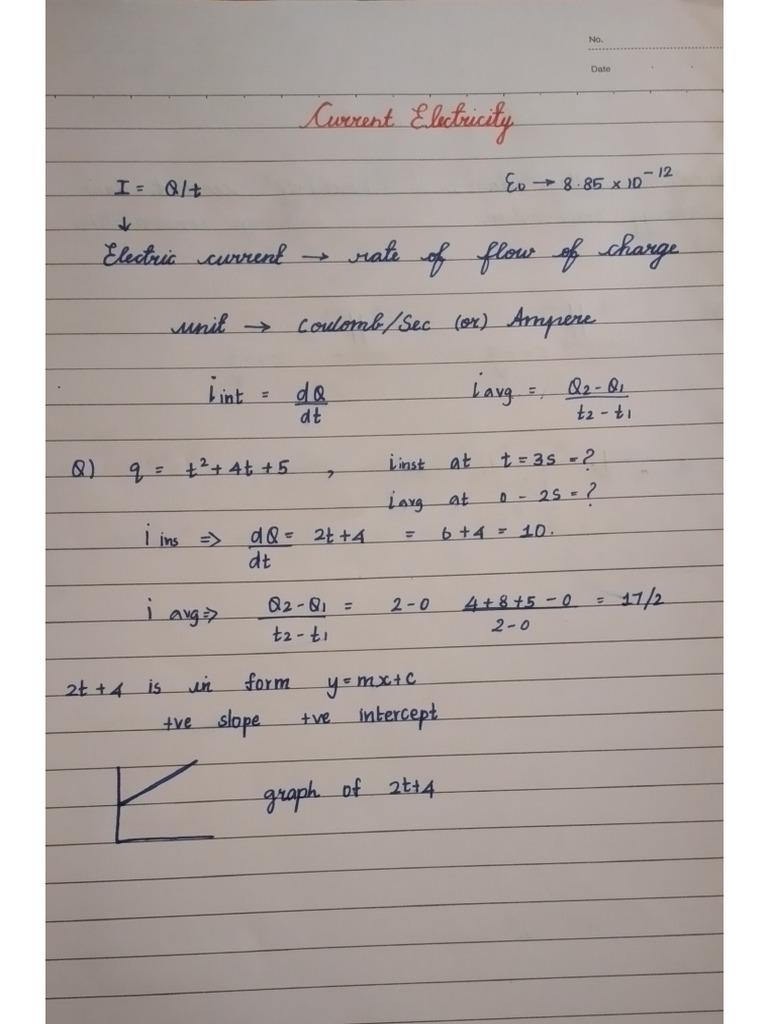 No.
Date
Current Electricity
I = Q/t    ε0 → 8.85 × 10⁻¹²
↓
Electric current → rate of flow of charge
unit → Coulomb/Sec (or) Ampere
i int = dQ/dt    i avg = Q2-Q1/t2-t1
Q) q = t²+4t+5 , i inst at t=3s=?
i avg at 0-2s=?
i ins => dQ/dt = 2t+4 = 6+4 = 10.
i avg=> Q2-Q1/t2-t1 = 2-0 4+8+5-0/2-0 = 17/2
2t+4 is in form y=mx+c
+ve slope +ve intercept
graph of 2t+4